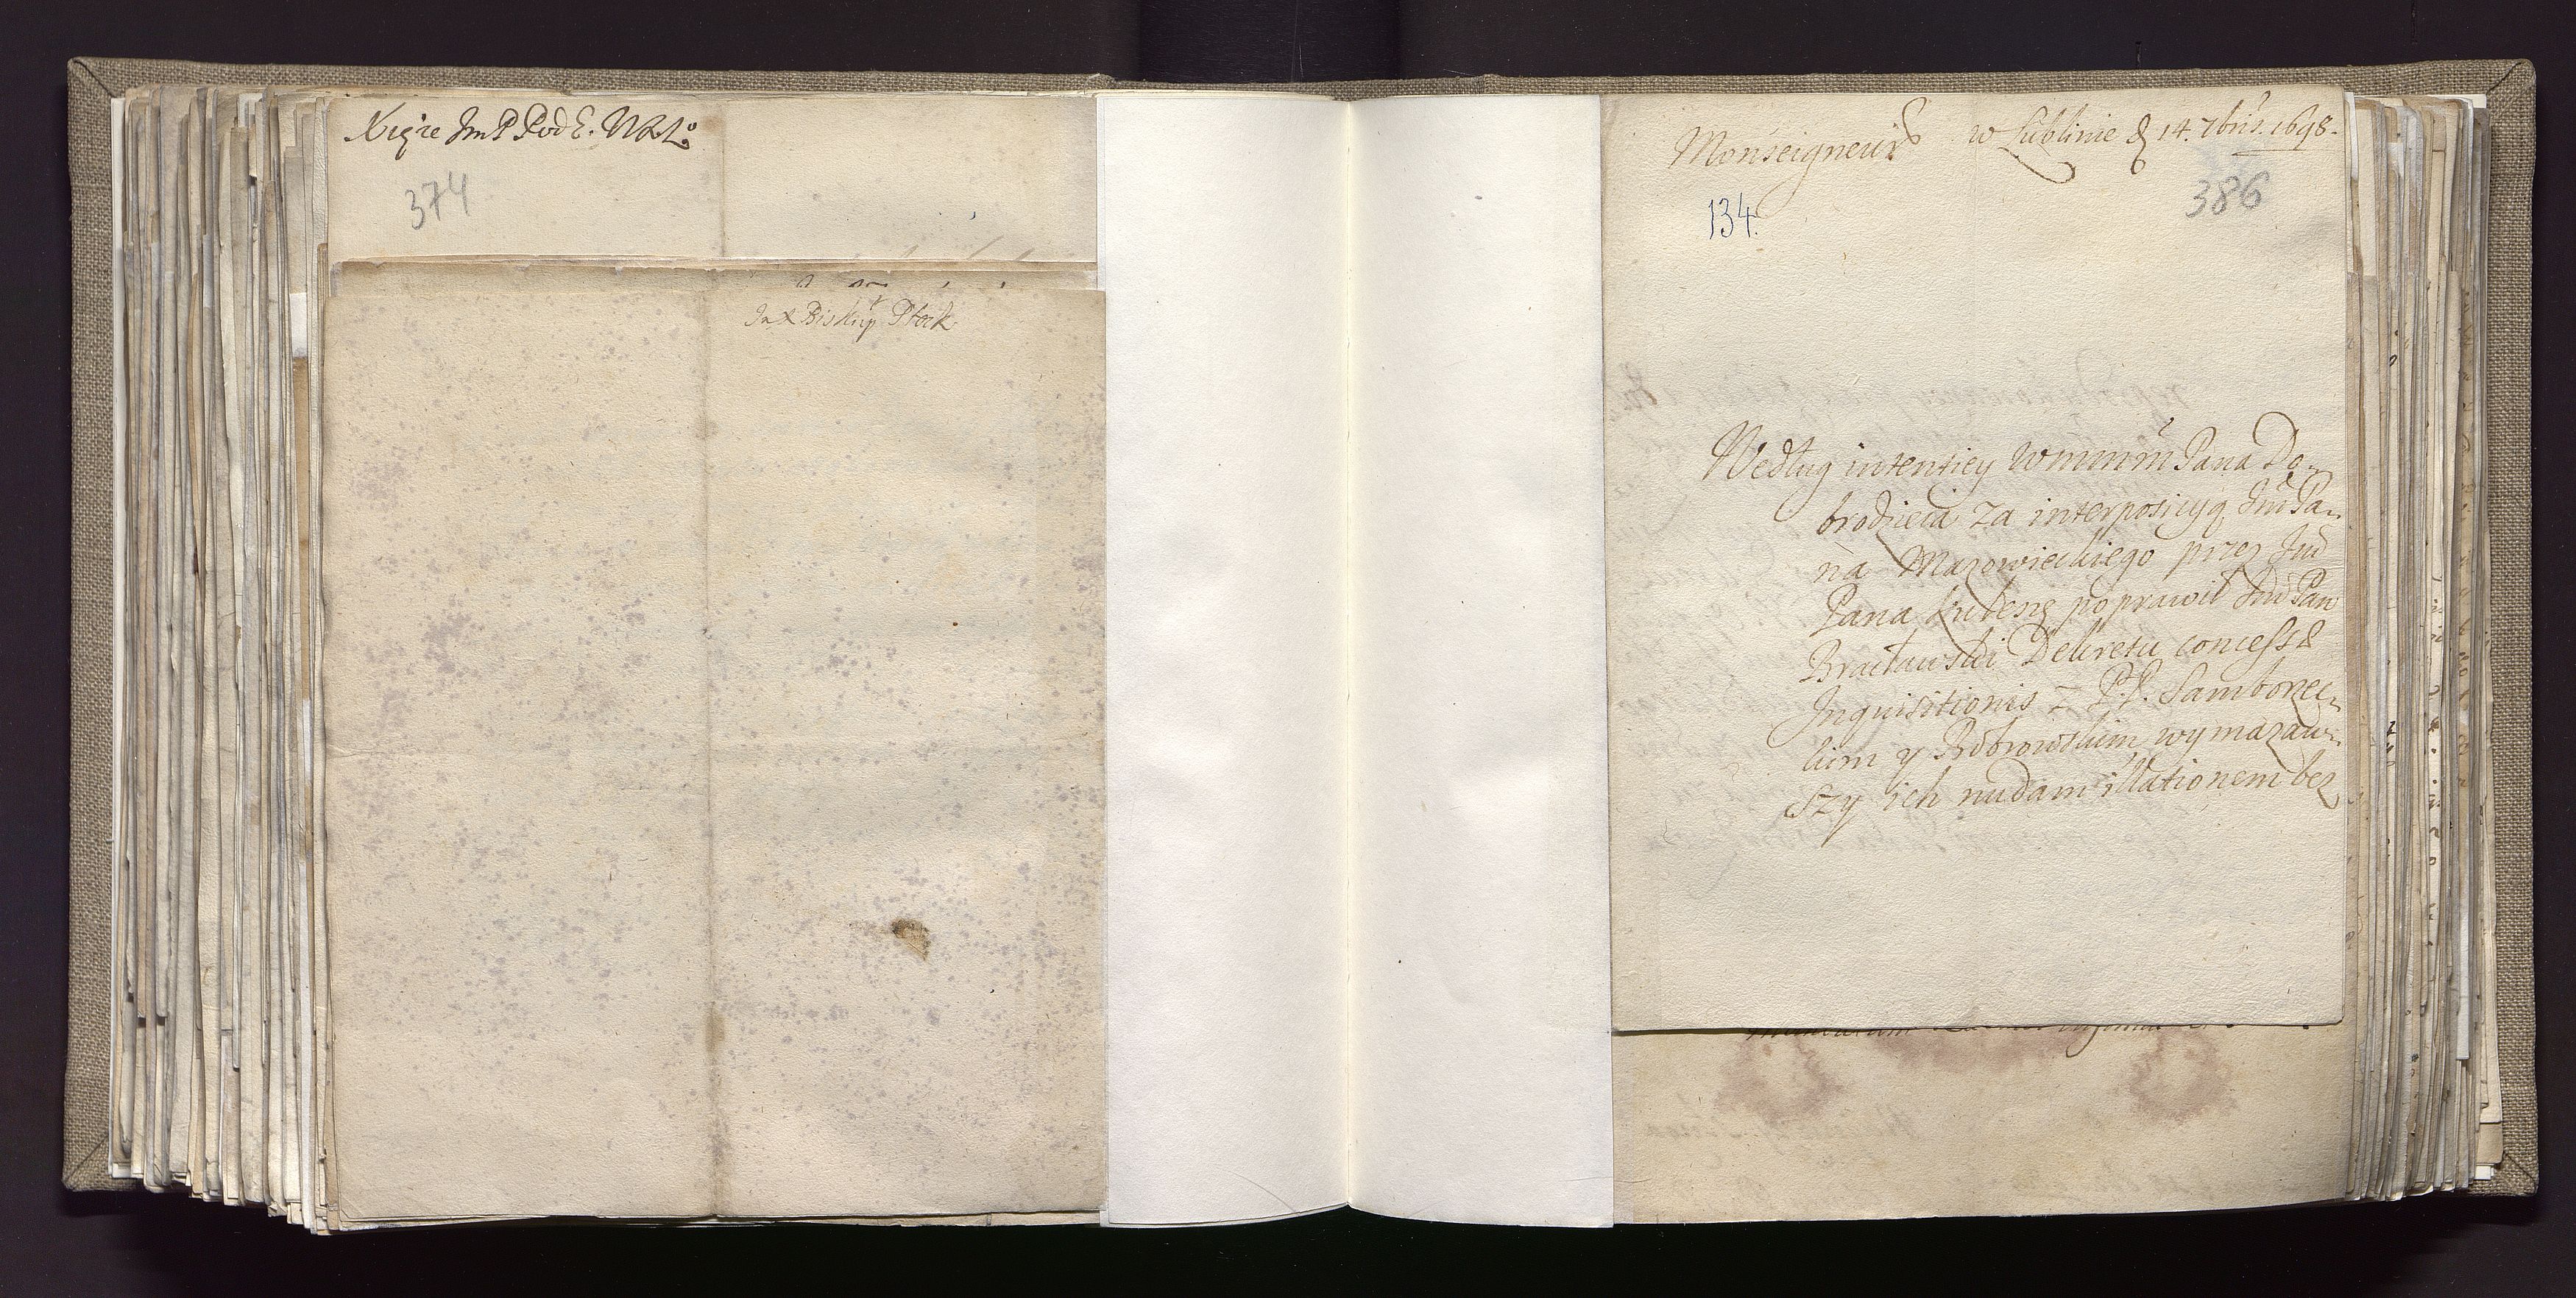 Xiąże Jm P Pod E. W X L°
374
JmX Biskup Płock
Monseigneur
w Lublinie d 14. 7bris. 1698.
134.
386
Według intentiey Wmmm Pana Do-
brodzieia za interposicyą Jm Pa-
na Mazowieckiego przez Jm
Pana Łubęnę poprawił Jm Pan
Bracławski Dekretu concessæ
Inquisitionis z P.P. Samborec-
kim y Bobrowskim, wymazaw-
szy ich nudam illationem bez